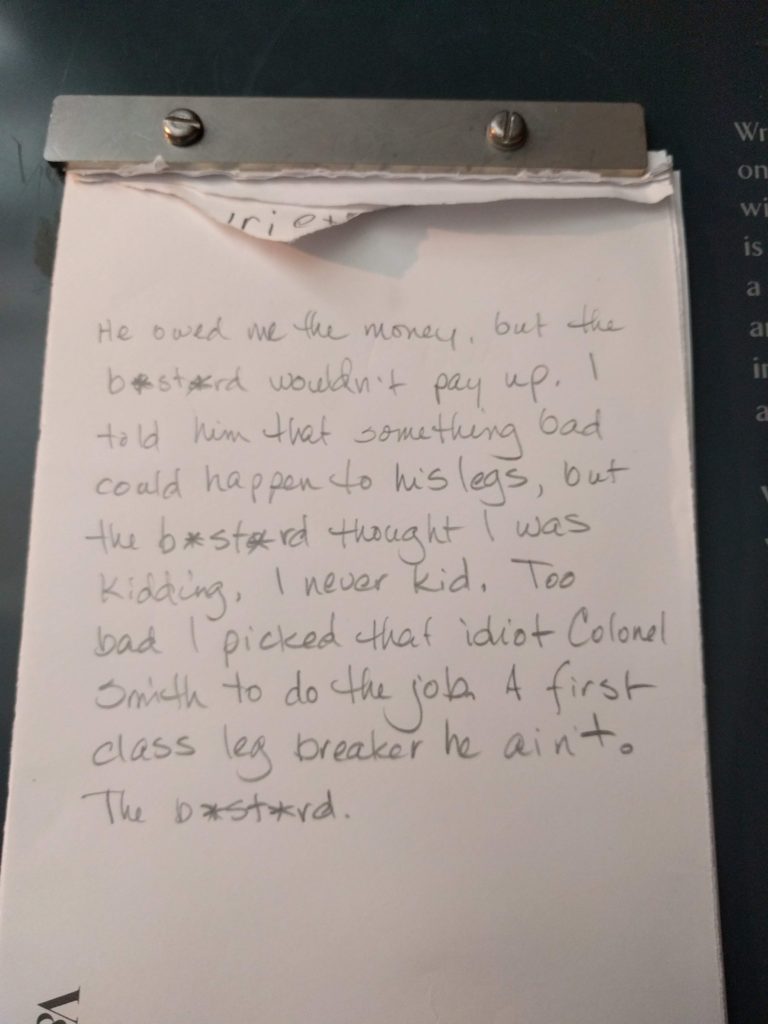 He owed me the money, but the
b*st*rd wouldn't pay up. I
told him that something bad
could happen to his legs, but
the b*st*rd thought I was
kidding. I never kid. Too
bad I picked that idiot Colonel
Smith to do the job. A first
class leg breaker he ain't.
The b*st*rd.
V&
Wr
on
wi
is
a
a